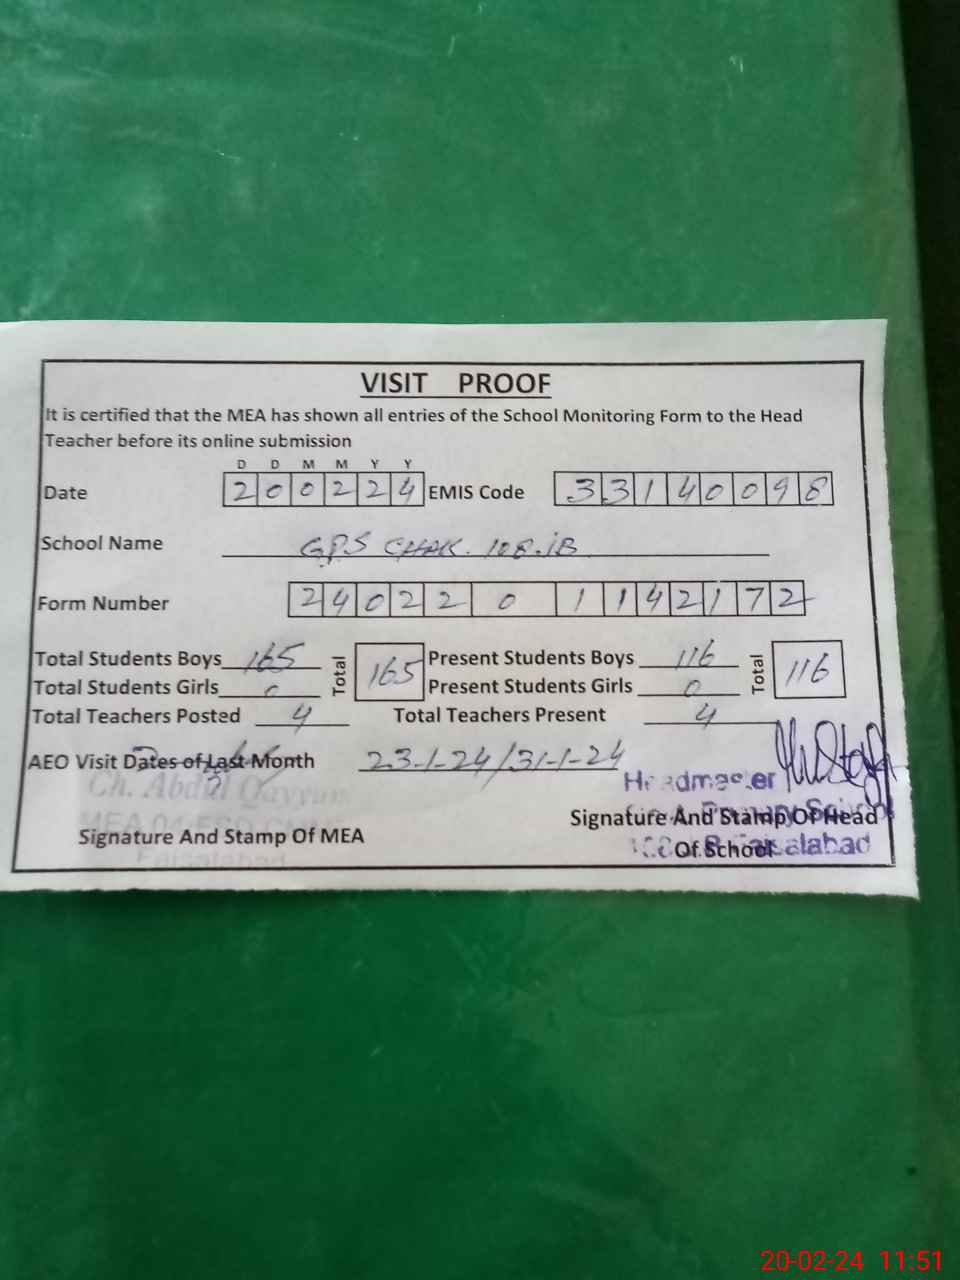 VISIT PROOF
It is certified that the MEA has shown all entries of the School Monitoring Form to the Head
Teacher before its online submission
D D M M Y Y
Date 2 0 0 2 2 4 EMIS Code 3 3 1 4 0 0 9 8
School Name GPS CHAK. 108.JB
Form Number 2 4 0 2 2 0 1 1 4 2 1 7 2
Total Students Boys 165 Total 165 Present Students Boys 116 Total 116
Total Students Girls 0 Present Students Girls 0
Total Teachers Posted 4 Total Teachers Present 4
AEO Visit Dates of Last Month 23-1-24/31-1-24
Ch. Abdul Qayyum
Headmaster
Signature And Stamp Of MEA
Signature And Stamp Of Head
Of School
Faisalabad
Faisalabad
20-02-24 11:51